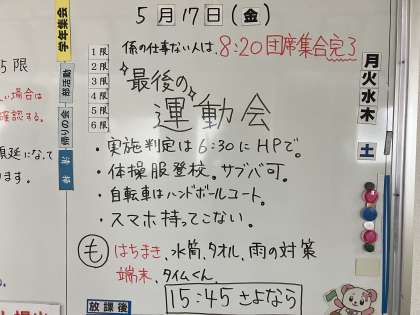 5月17日(金)
学年集会
部活動
帰りの会
1限
2限
3限
4限
5限
6限
係の仕事ない人は、8:20団席集合完了
最後の
運動会
・実施判定は6:30にHPで。
・体操服登校。サブバ可。
・自転車はハンドボールコート。
・スマホ持ってこない。
も はちまき、水筒、タオル、雨の対策
端末、タイムくん、
15:45 さよなら
放課後
月
火
水
木
土
5限
い場合は
確認する。
順延になって
ます。